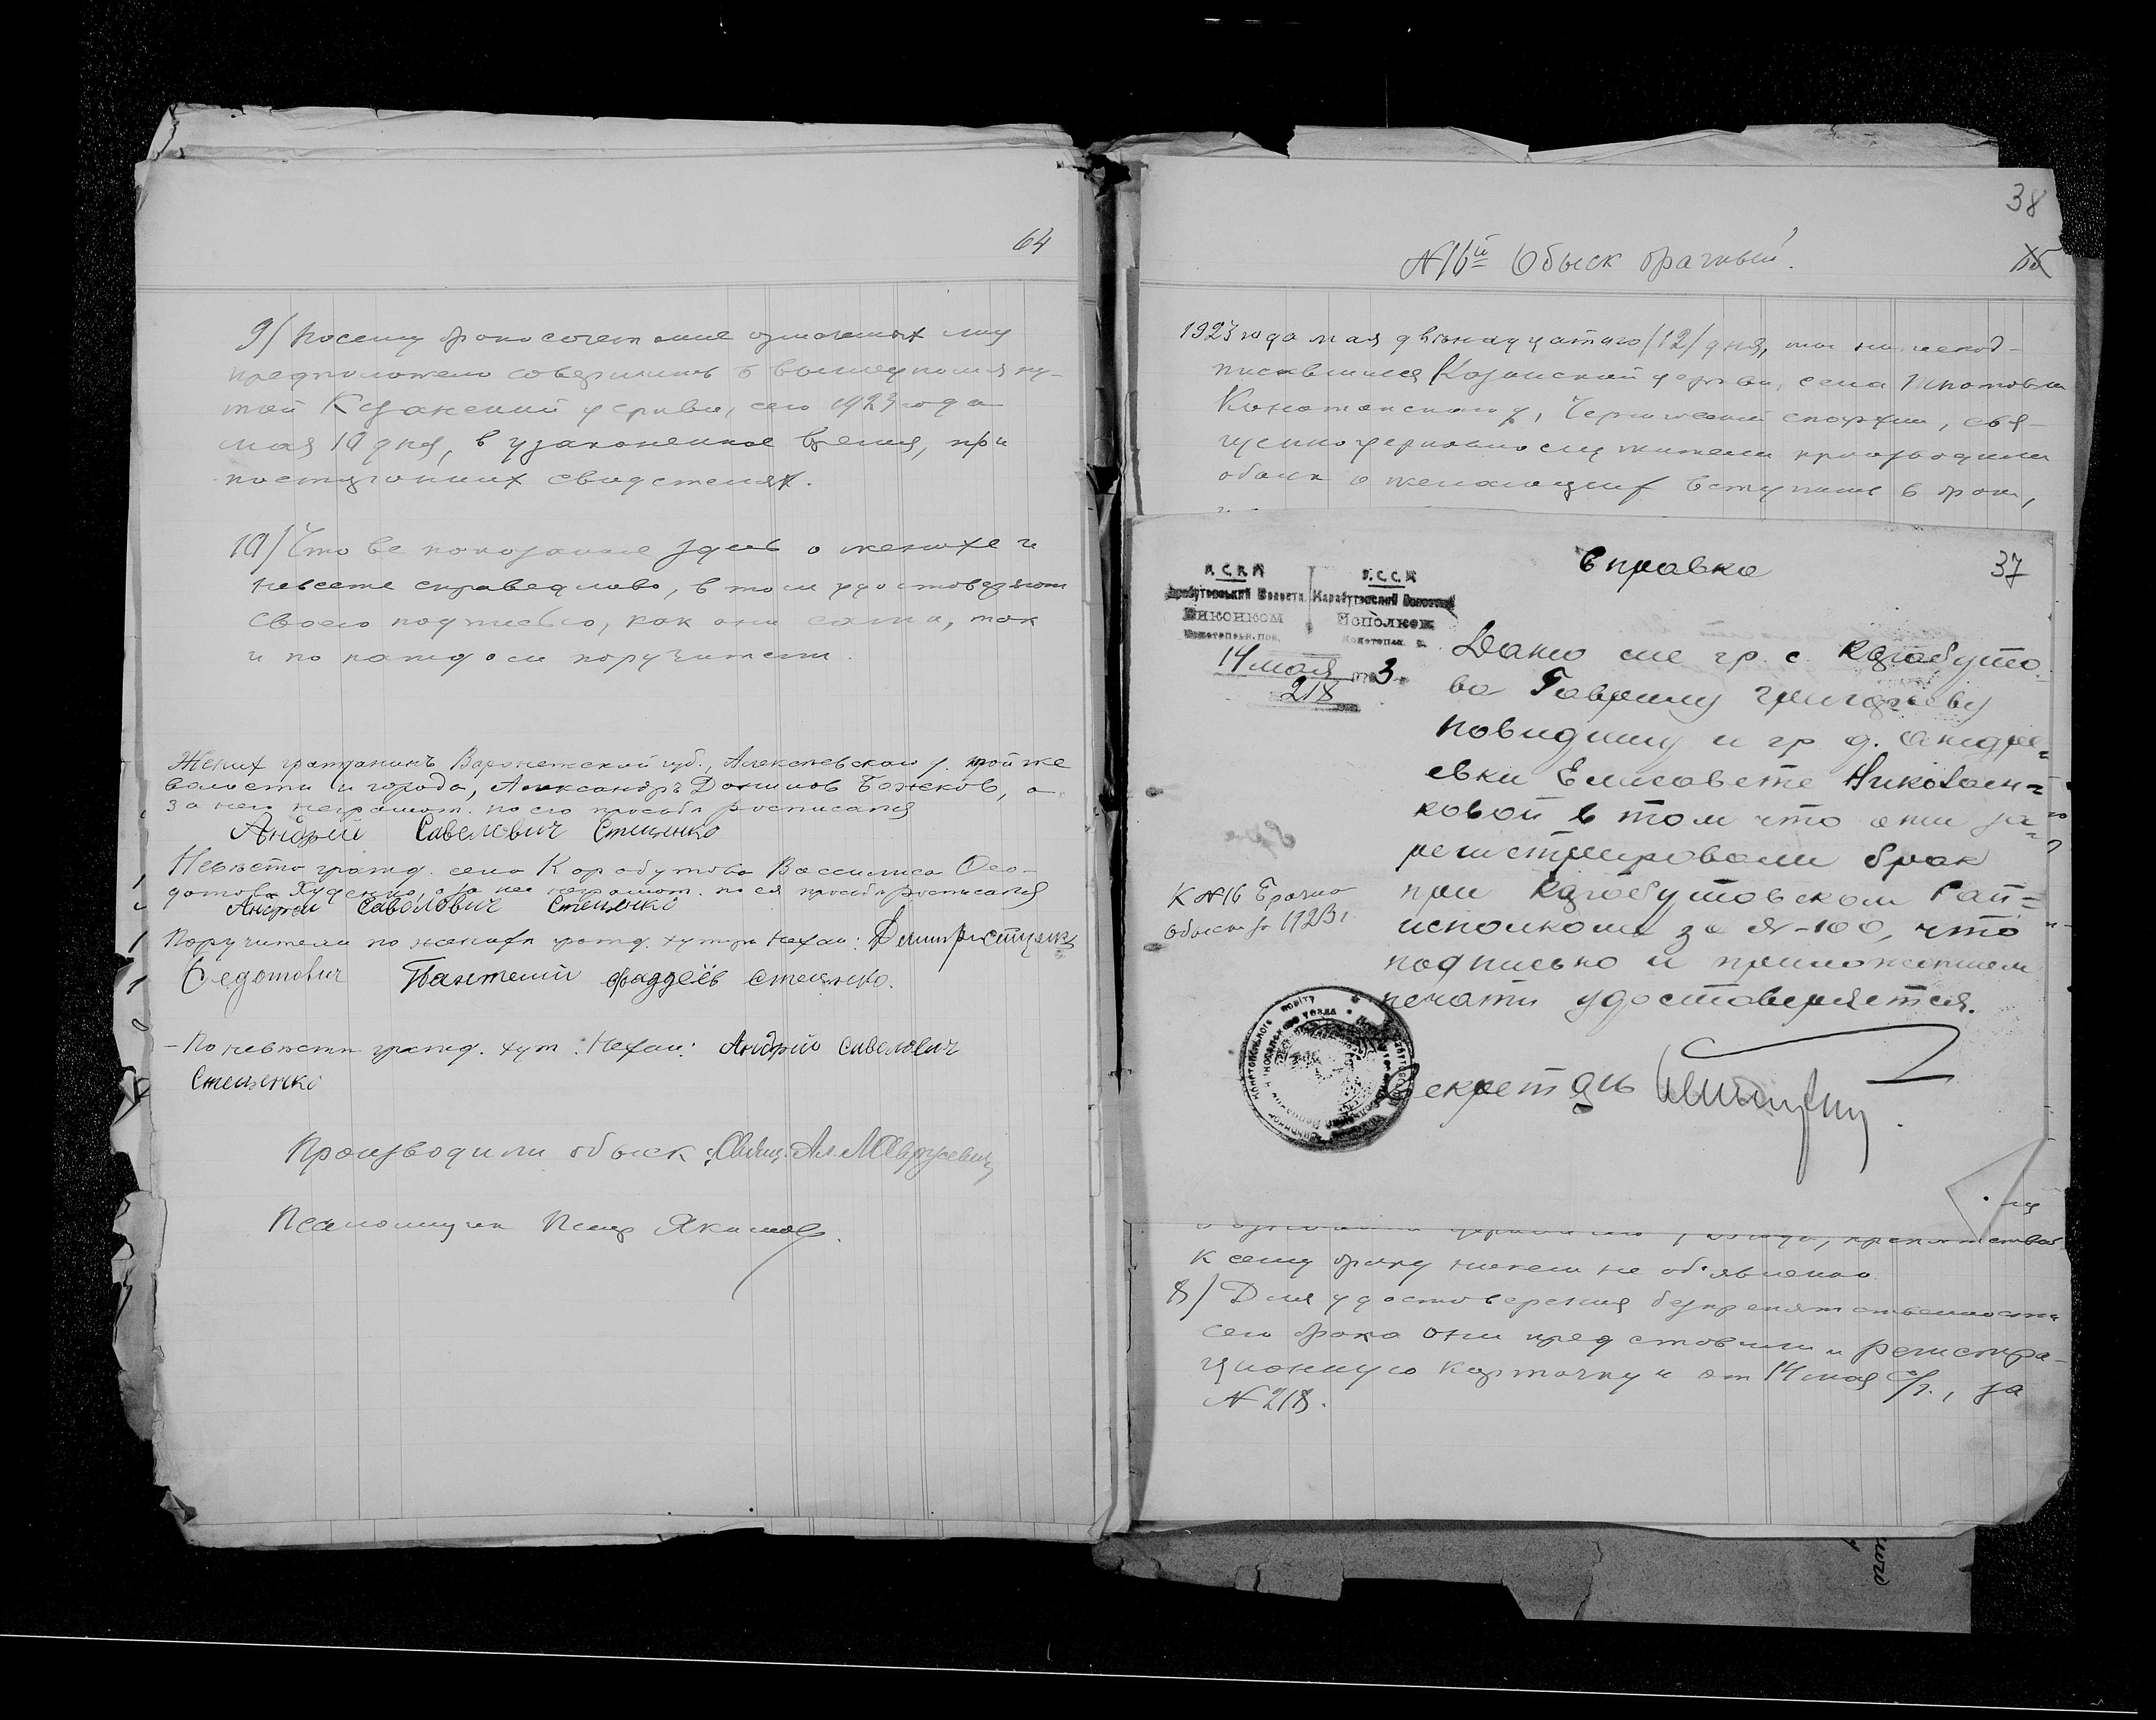 64
9/ Посему бракосочетание означенных лиц
предположено совершить в вышеупомяну-
той Казанской церкви, сего 1923 года
мая 10 дня, в узаконенное время, при
посторонних свидетелях.
10/ Что все показанное здесь о женихе и
невесте справедливо, в том удостоверяют
своею подписью, как они сами, так
и по каждом поручители.
Жених гражданинъ Воронежской губ., Алексеевской у. той же
волости и города, Александръ Данилов Божков, а
за него неграмот. по его просьбѣ росписался
Андрій Савелович Стеценко
Невѣста гражд. села Карабутова Василиса Фео-
дотова, а за нее неграмот. по ея просьбѣ росписался
Андрій Савелович Стеценко
Поручители по женихѣ гражд. хутора Нехаи: Демитрі Стеценко
Федотович Пантелий Фаддеёв Стеценко.
По невѣсте гражд. хут. Нехаи: Андрій Савелович
Стеценко
Производили обыск: Свящ. Ал.
Псаломщик Петр Якимов.
38
№ 16й Обыск брачный.
1923 года мая двѣнадцатаго /12/ дня, мы нижепод-
писавшиеся Казанской церкви, села
Конотопского у., Черниговской епархии, свя-
щенноцерковнослужители производили
обыск о желающих вступить в брак,
Справка
37
У.С.Р.Р. У.С.С.Р.
Карабутовський Волости. Карабутовский Волостной
Виконком Исполком
Конотопськ. пов. Конотопск. у.
14 мая 1923 г.
218
Дано сие гр. с. Карабуто
ва Гаврилу Григорьеву
Повидишу и гр. д. Андре=
евки Елисавете Николаен=
ковой в том что они за=
регистрировали брак
при Карабутовском Рай=
исполкоме за №-100, что
подписью и приложением
печати удостоверяется.
Секретарь
К №16 Брачно
обыска за 1923 г.
к сему браку никем не объявлено
8/ Для удостоверения безпрепятственности
сего брака они представили регистра-
ционную карточку от 14 мая с/г., за
№ 218.